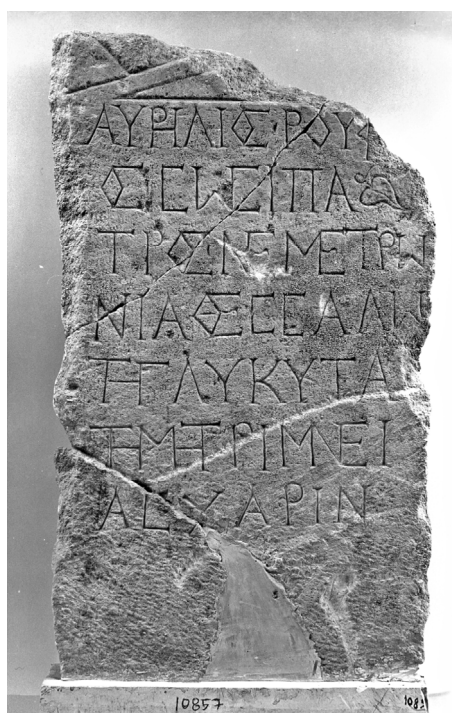 ΑΥΡΗΛΙΟϹ ΡΟΥΦ
ΟϹ ΚΕ ϹΩϹΕΙΠΑ
ΤΡΟϹ ΚΕ ΜΕΤΡΩ
ΝΙΑ ΘΕϹϹΑΛΩ
ΤΗ ΓΛΥΚΥΤΑ
ΤΗ ΜΗΤΡΙ ΜΝΕΙ
ΑϹ ΧΑΡΙΝ
10857